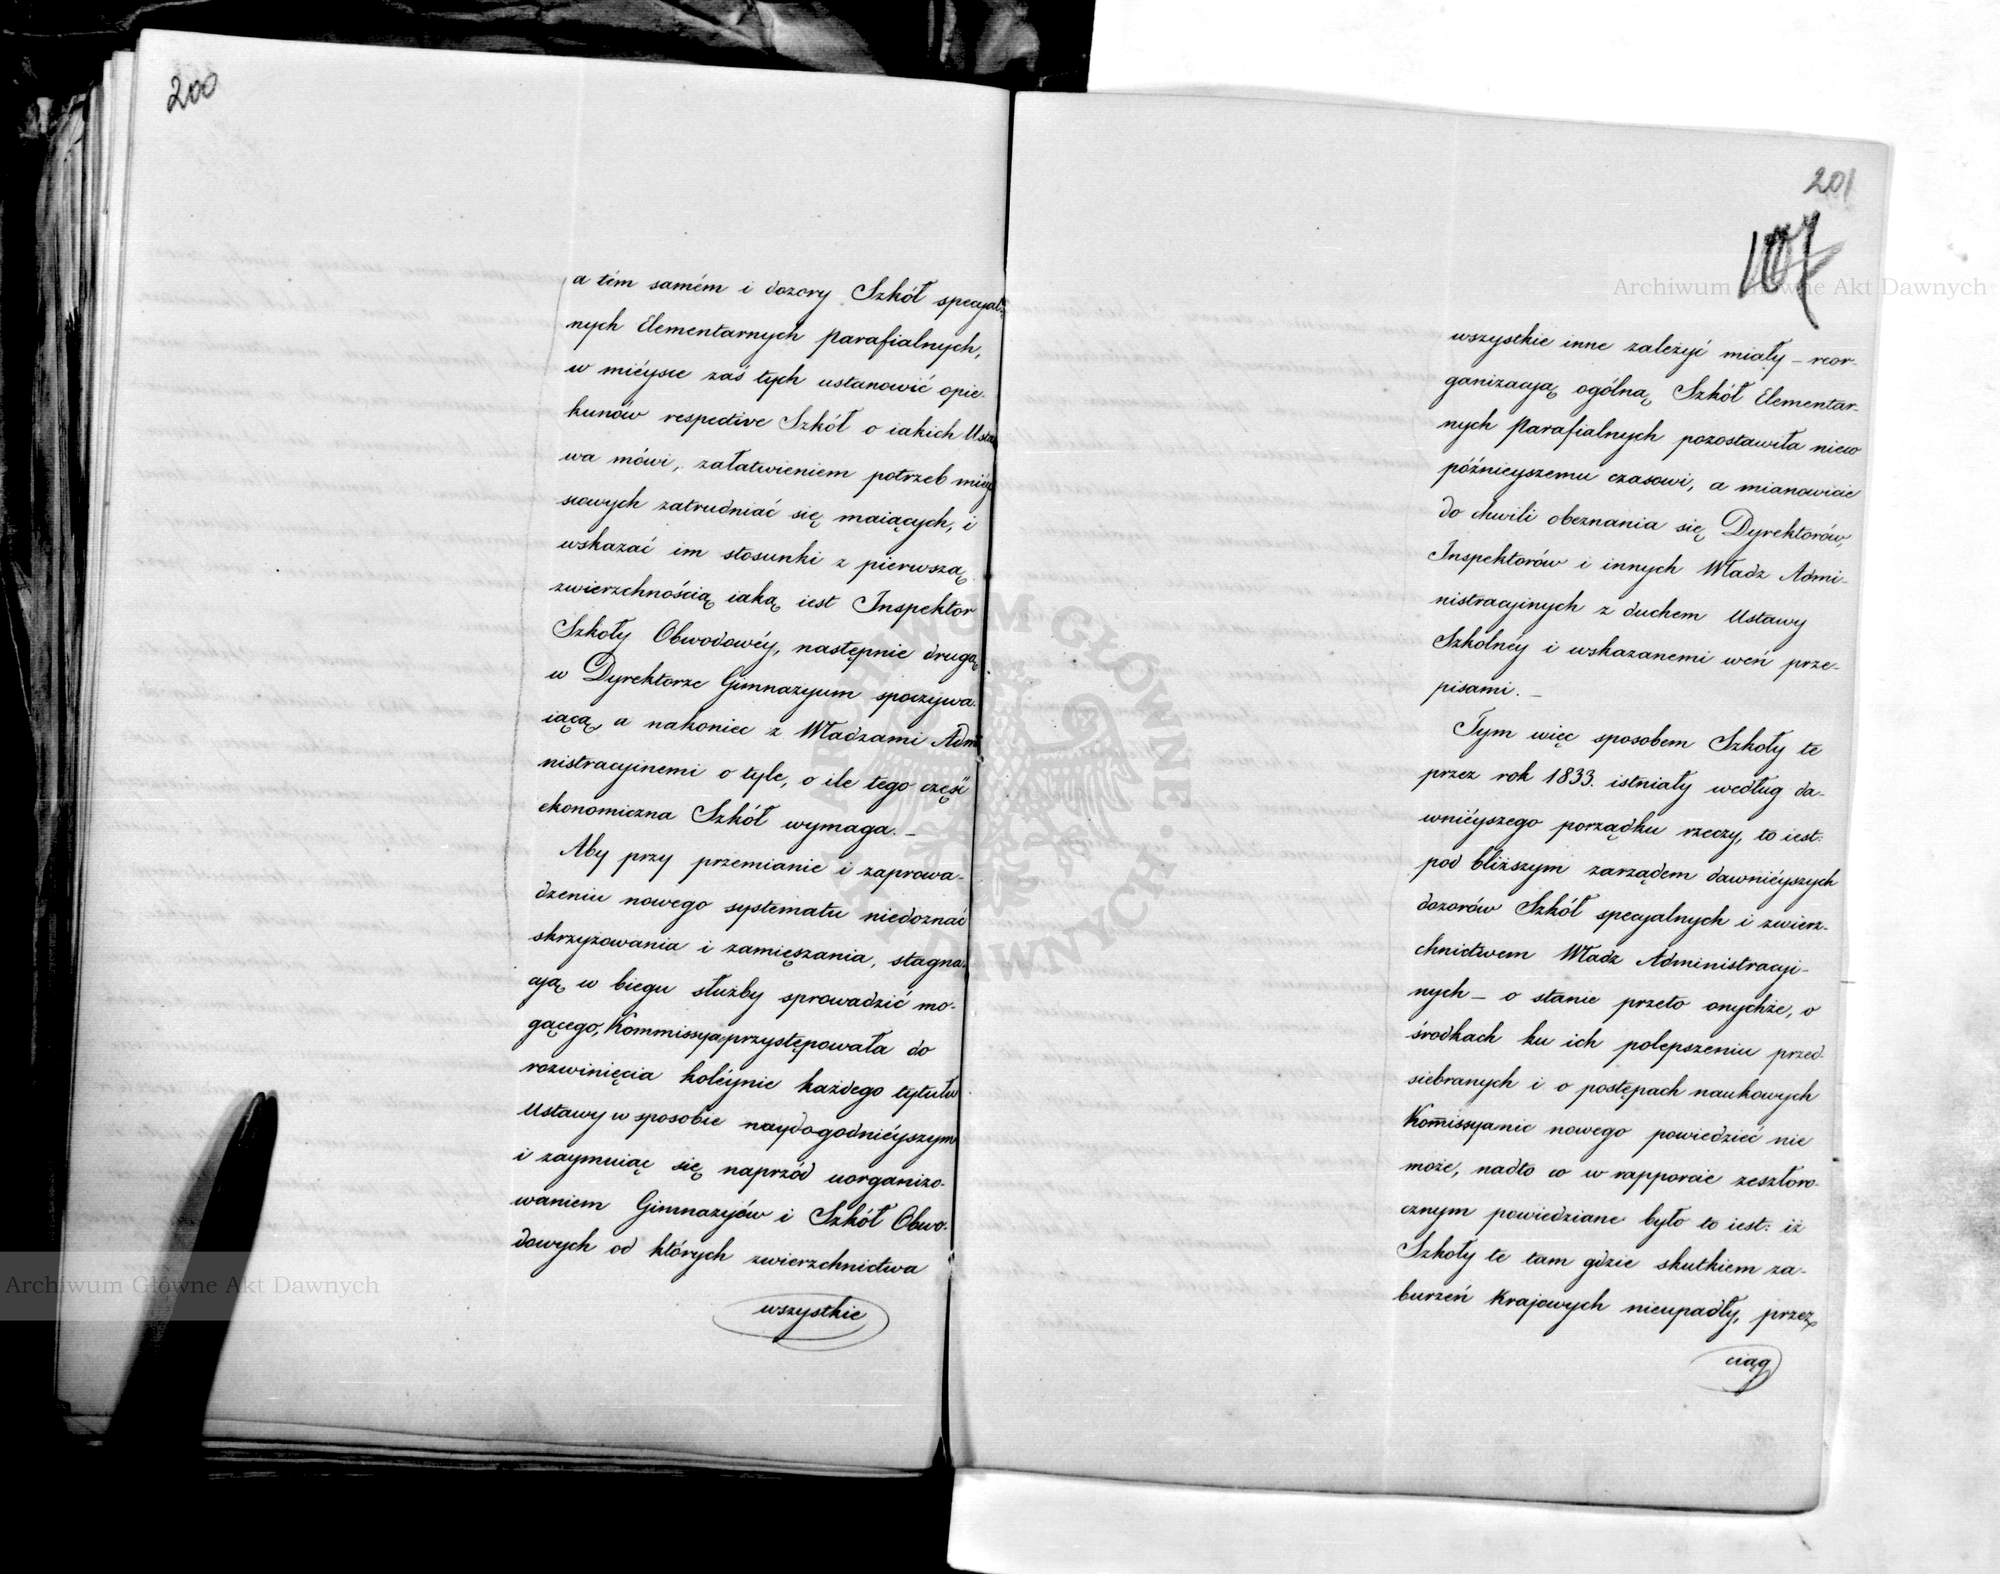 200
a tém samém i dozory Szkół specyal-
nych Elementarnych parafialnych,
w mieysce zaś tych ustanowić opie-
kunów respective Szkół o iakich Usta
wa mówi, załatwieniem potrzeb miey
scowych zatrudniać się maiących, i
wskazać im stosunki z pierwszą
zwierzchnością iaką iest Inspektor
Szkoły Obwodowéy, następnie drugą
w Dyrektorze Gimnazyum spoczywa-
iącą, a nakoniec z Władzami Admi
nistracyinemi o tyle, o ile tego część
ekonomiczna Szkół wymaga. –
Aby przy przemianie i zaprowa-
dzeniu nowego systematu niedoznać
skrzyżowania i zamięszania, stagna-
cyą w biegu służby sprowadzić mo-
gącego, Kommissya przystępowała do
rozwinięcia koléynie każdego tytułu
Ustawy w sposobie naydogodniéyszym
i zaymuiąc się naprzód uorganizo-
waniem Gimnazyów i Szkół Obwo-
dowych od których zwierzchnictwa
wszystkie
201
107
wszystkie inne zależyć miały – reor-
ganizacyą ogólną Szkół Elementar-
nych parafialnych pozostawiła nieco
późnieyszemu czasowi, a mianowicie
do chwili obeznania się Dyrektorów,
Inspektorów i innych Władz Admi-
nistracyinych z duchem Ustawy
Szkolnéy i wskazanemi weń prze-
pisami. –
Tym więc sposobem Szkoły te
przez rok 1833. istniały według da-
wniéyszego porządku rzeczy, to iest:
pod bliższym zarządem dawniéyszych
dozorów Szkół specyalnych i zwierz-
chnictwem Władz Administracyi-
nych – o stanie przeto onychże, o
środkach ku ich polepszeniu przed-
siebranych i o postępach naukowych
Kom̄issya nic nowego powiedzieć nie
może, nadto co w rapporcie zeszłoro-
cznym powiedziane było to iest: iż
Szkoły te tam gdzie skutkiem za-
burzeń Krajowych nieupadły, przez
ciąg
Archiwum Główne Akt Dawnych
Archiwum Główne Akt Dawnych
ARCHIWUM GŁÓWNE AKT DAWNYCH